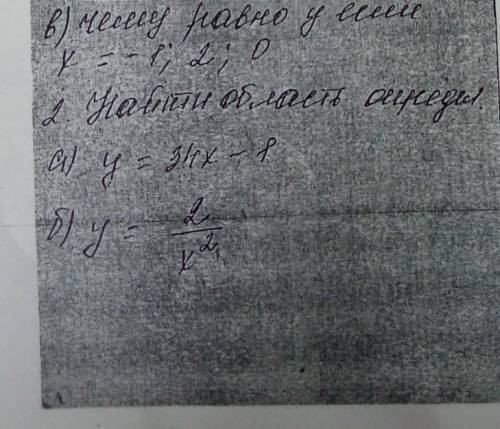 в) чему равно у если
x = -1; 2; 0
2. Найти область определ.
а) y = 34x - 8
б) y = 2/x²